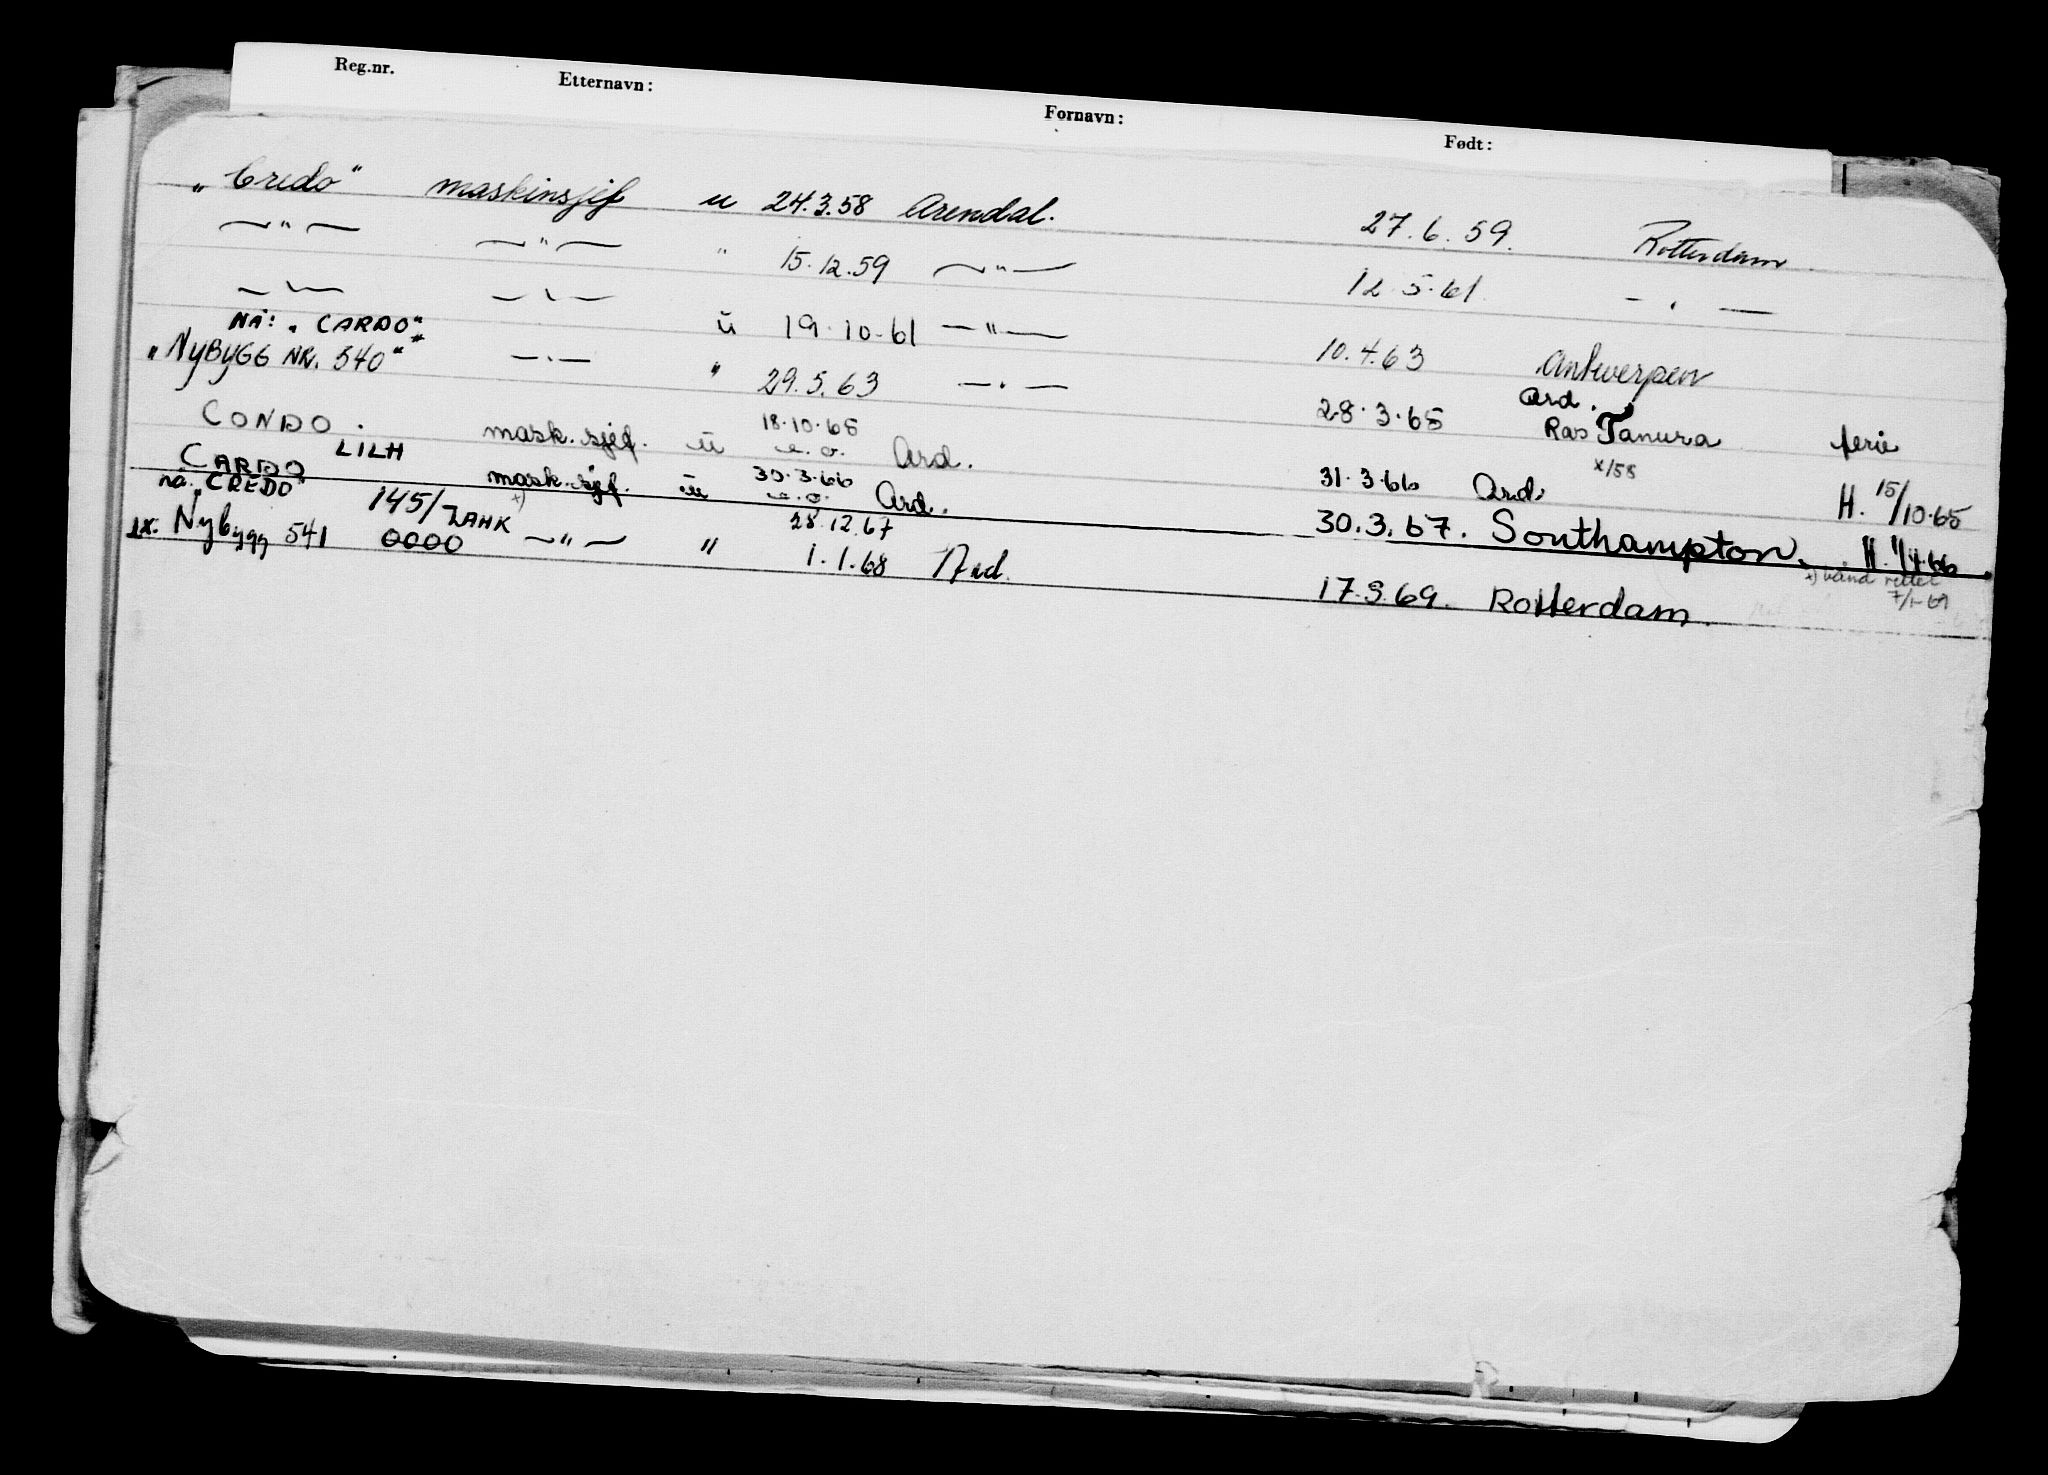 Reg.nr. Etternavn: Fornavn: Født:
„Credo" maskinsjef u 24.3.58 Arendal. 27.6.59. Rotterdam
—"— —"— " 15.12.59 —"— 12.5.61 — " —
—"— —"— ü 19.10.61 —"— 10.4.63 Antwerpen
NÅ: „CARDO"
„NyBYGG NR. 540" —"— " 29.5.63 —"— 28.3.65 Ard.
Ras Tanura ferie
CONDO. LILH mask.sjef. ü 18.10.65 Ard. 31.3.66 Ard. x/58 H. 15/10.65
CARDO mask.sjef. ü 30.3.66 Ard. 30.3.67. Southampton. H. 1/4.66
nå „CREDO" 145/ LAHK x) 28.12.67 x) bånd rettet 7/1-69
ex. Nybygg 541 0000 —"— " 1.1.68 Ard. 17.3.69. Rotterdam.